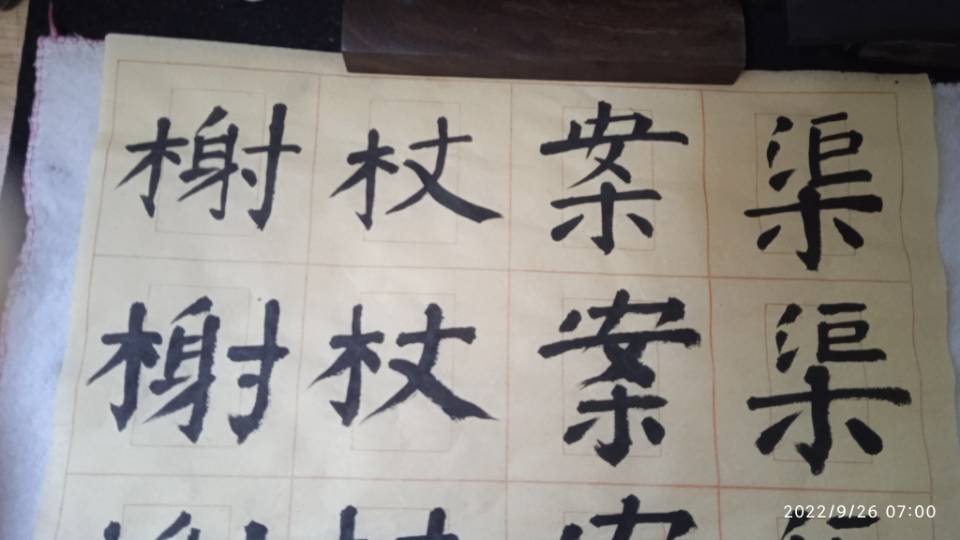 榭杖案渠
榭杖案渠
榭
2022/9/26 07:00